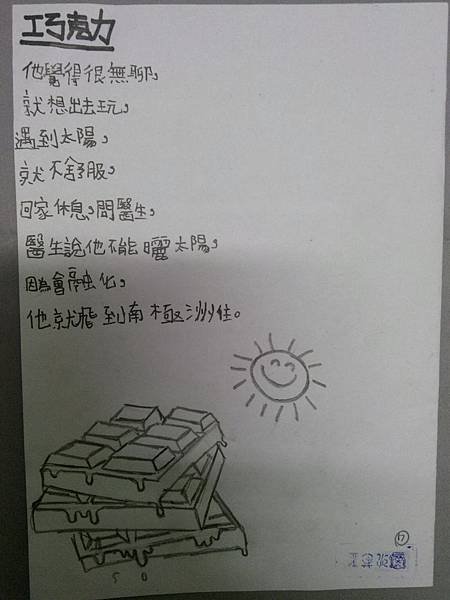 巧克力
他覺得很無聊,
就想出去玩,
遇到太陽,
就不舒服,
回家休息,問醫生,
醫生說他不能曬太陽,
因為會融化,
他就到南極洲住。
17